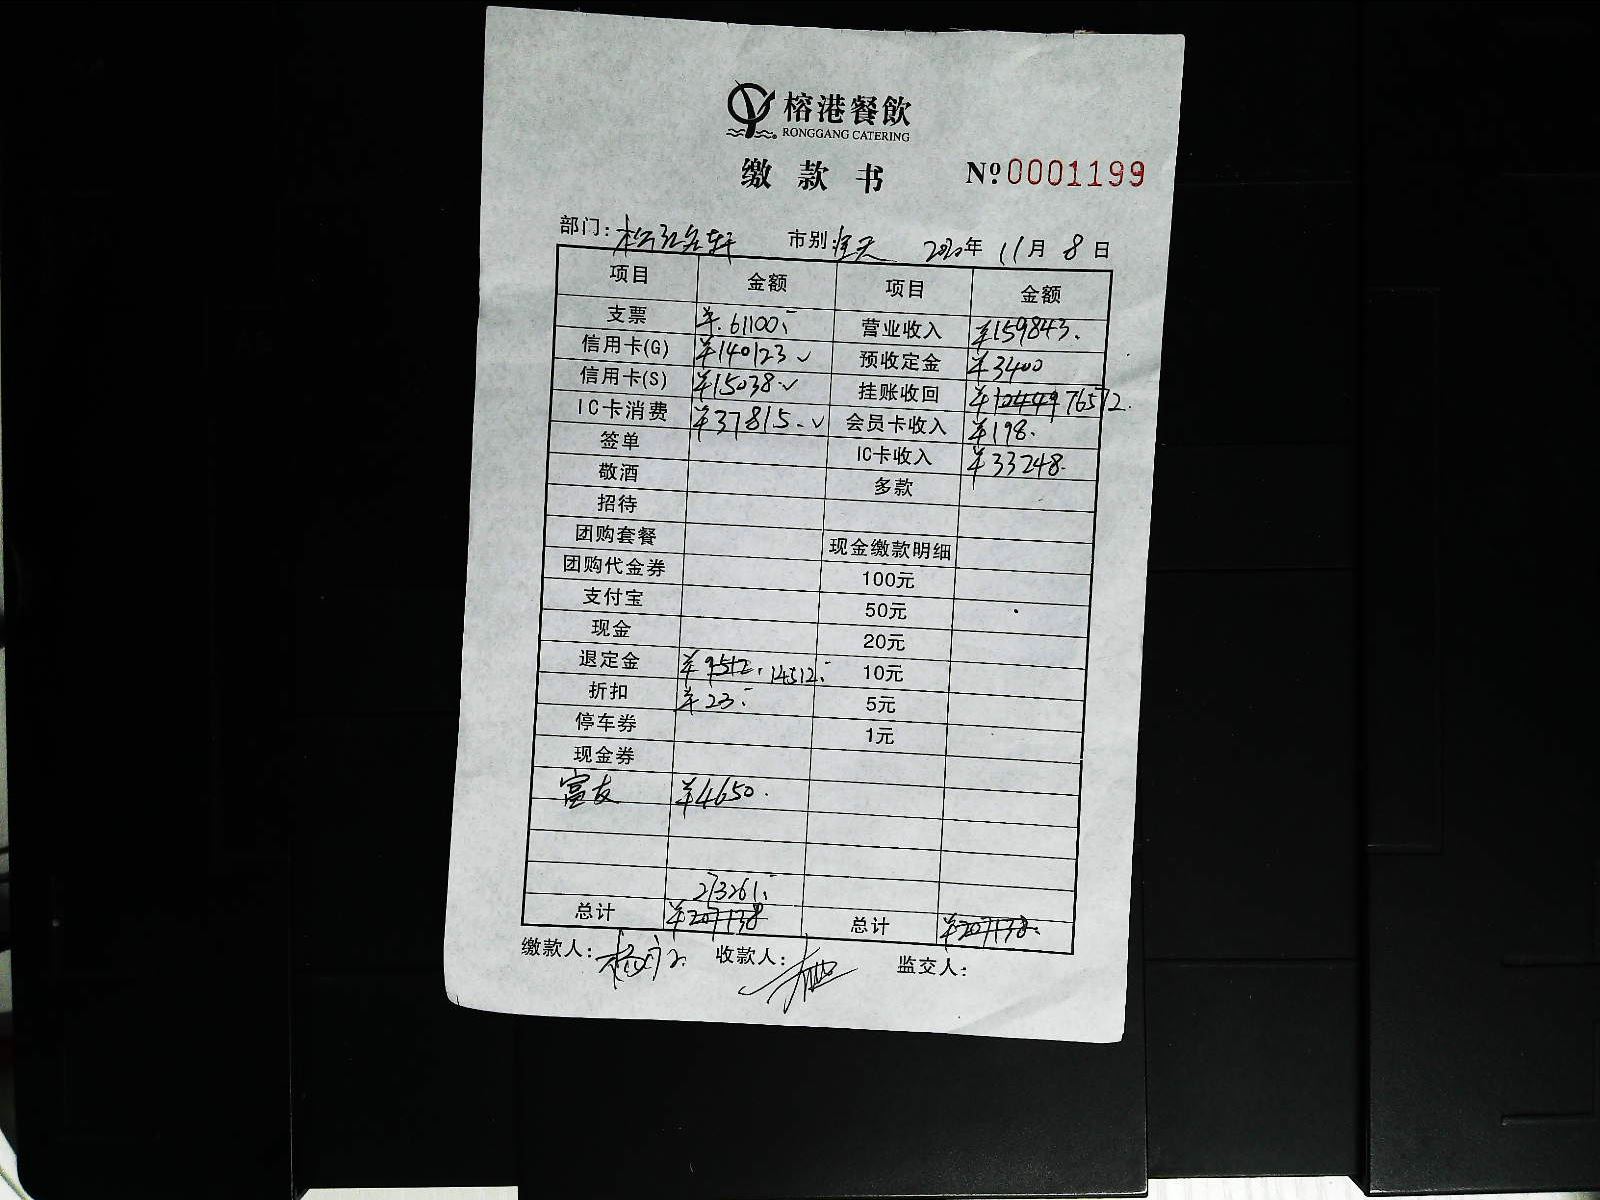 榕港餐飲
RONGGANG CATERING
缴款书 №0001199
部门: 市别:全天 2020年 11月 8日
项目 金额 项目 金额
支票 ¥.61100.- 营业收入 ¥159843.
信用卡(G) ¥140123 ✓ 预收定金 ¥3400
信用卡(S) ¥15038.✓ 挂账收回 ¥10449 76572.
IC卡消费 ¥37815.✓ 会员卡收入 ¥198.
签单 IC卡收入 ¥33248.
敬酒 多款
招待
团购套餐 现金缴款明细
团购代金券 100元
支付宝 50元
现金 20元
退定金 ¥9512. 14512.- 10元
折扣 ¥23.- 5元
停车券 1元
现金券
富友 ¥4650.
273261.-
总计 ¥207138 总计 ¥207138.
缴款人: 收款人: 监交人: